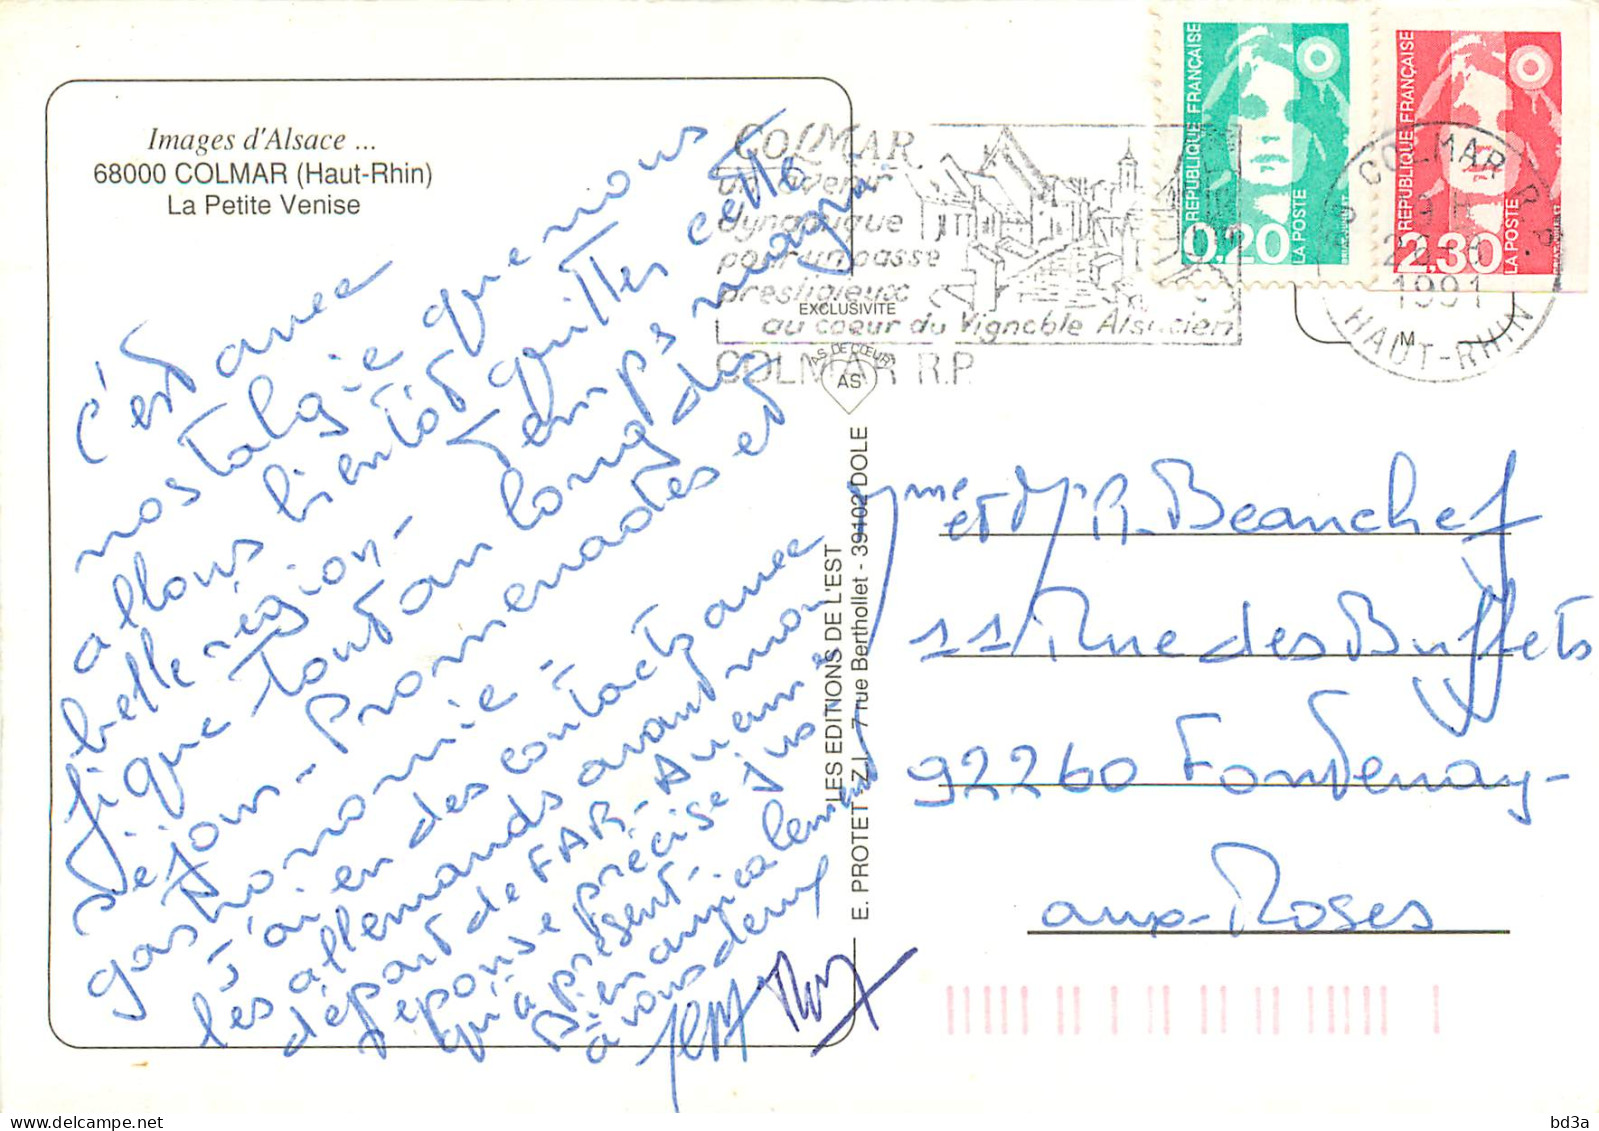 Images d'Alsace ...
68000 COLMAR (Haut-Rhin)
La Petite Venise
c'est avec
nostalgie que nous
allons bientôt quitter cette
belle région - Temps magni
fique tout au long du
séjour - Promenades et
gastronomie -
J'ai eu des contacts avec
les allemands avant mon
départ de FAR - Aucune
réponse précise jus
qu'à présent -
Bien amicalement
à vous deux
COLMAR
un avenir
dynamique
pour un passé
prestigieux
au coeur du Vignoble Alsacien
COLMAR R.P.
EXCLUSIVITE
AS DE CŒUR
AS
LES EDITIONS DE L'EST
E. PROTET - Z.I. - 7 rue Berthollet - 39102 DOLE
RÉPUBLIQUE FRANÇAISE
0,20
LA POSTE
RÉPUBLIQUE FRANÇAISE
2,30
LA POSTE
COLMAR R.P.
1991
HAUT-RHIN
M
Mme et Mr R. Beanchef
11 Rue des Buffets
92260 Fontenay-
aux-Roses
bd3a